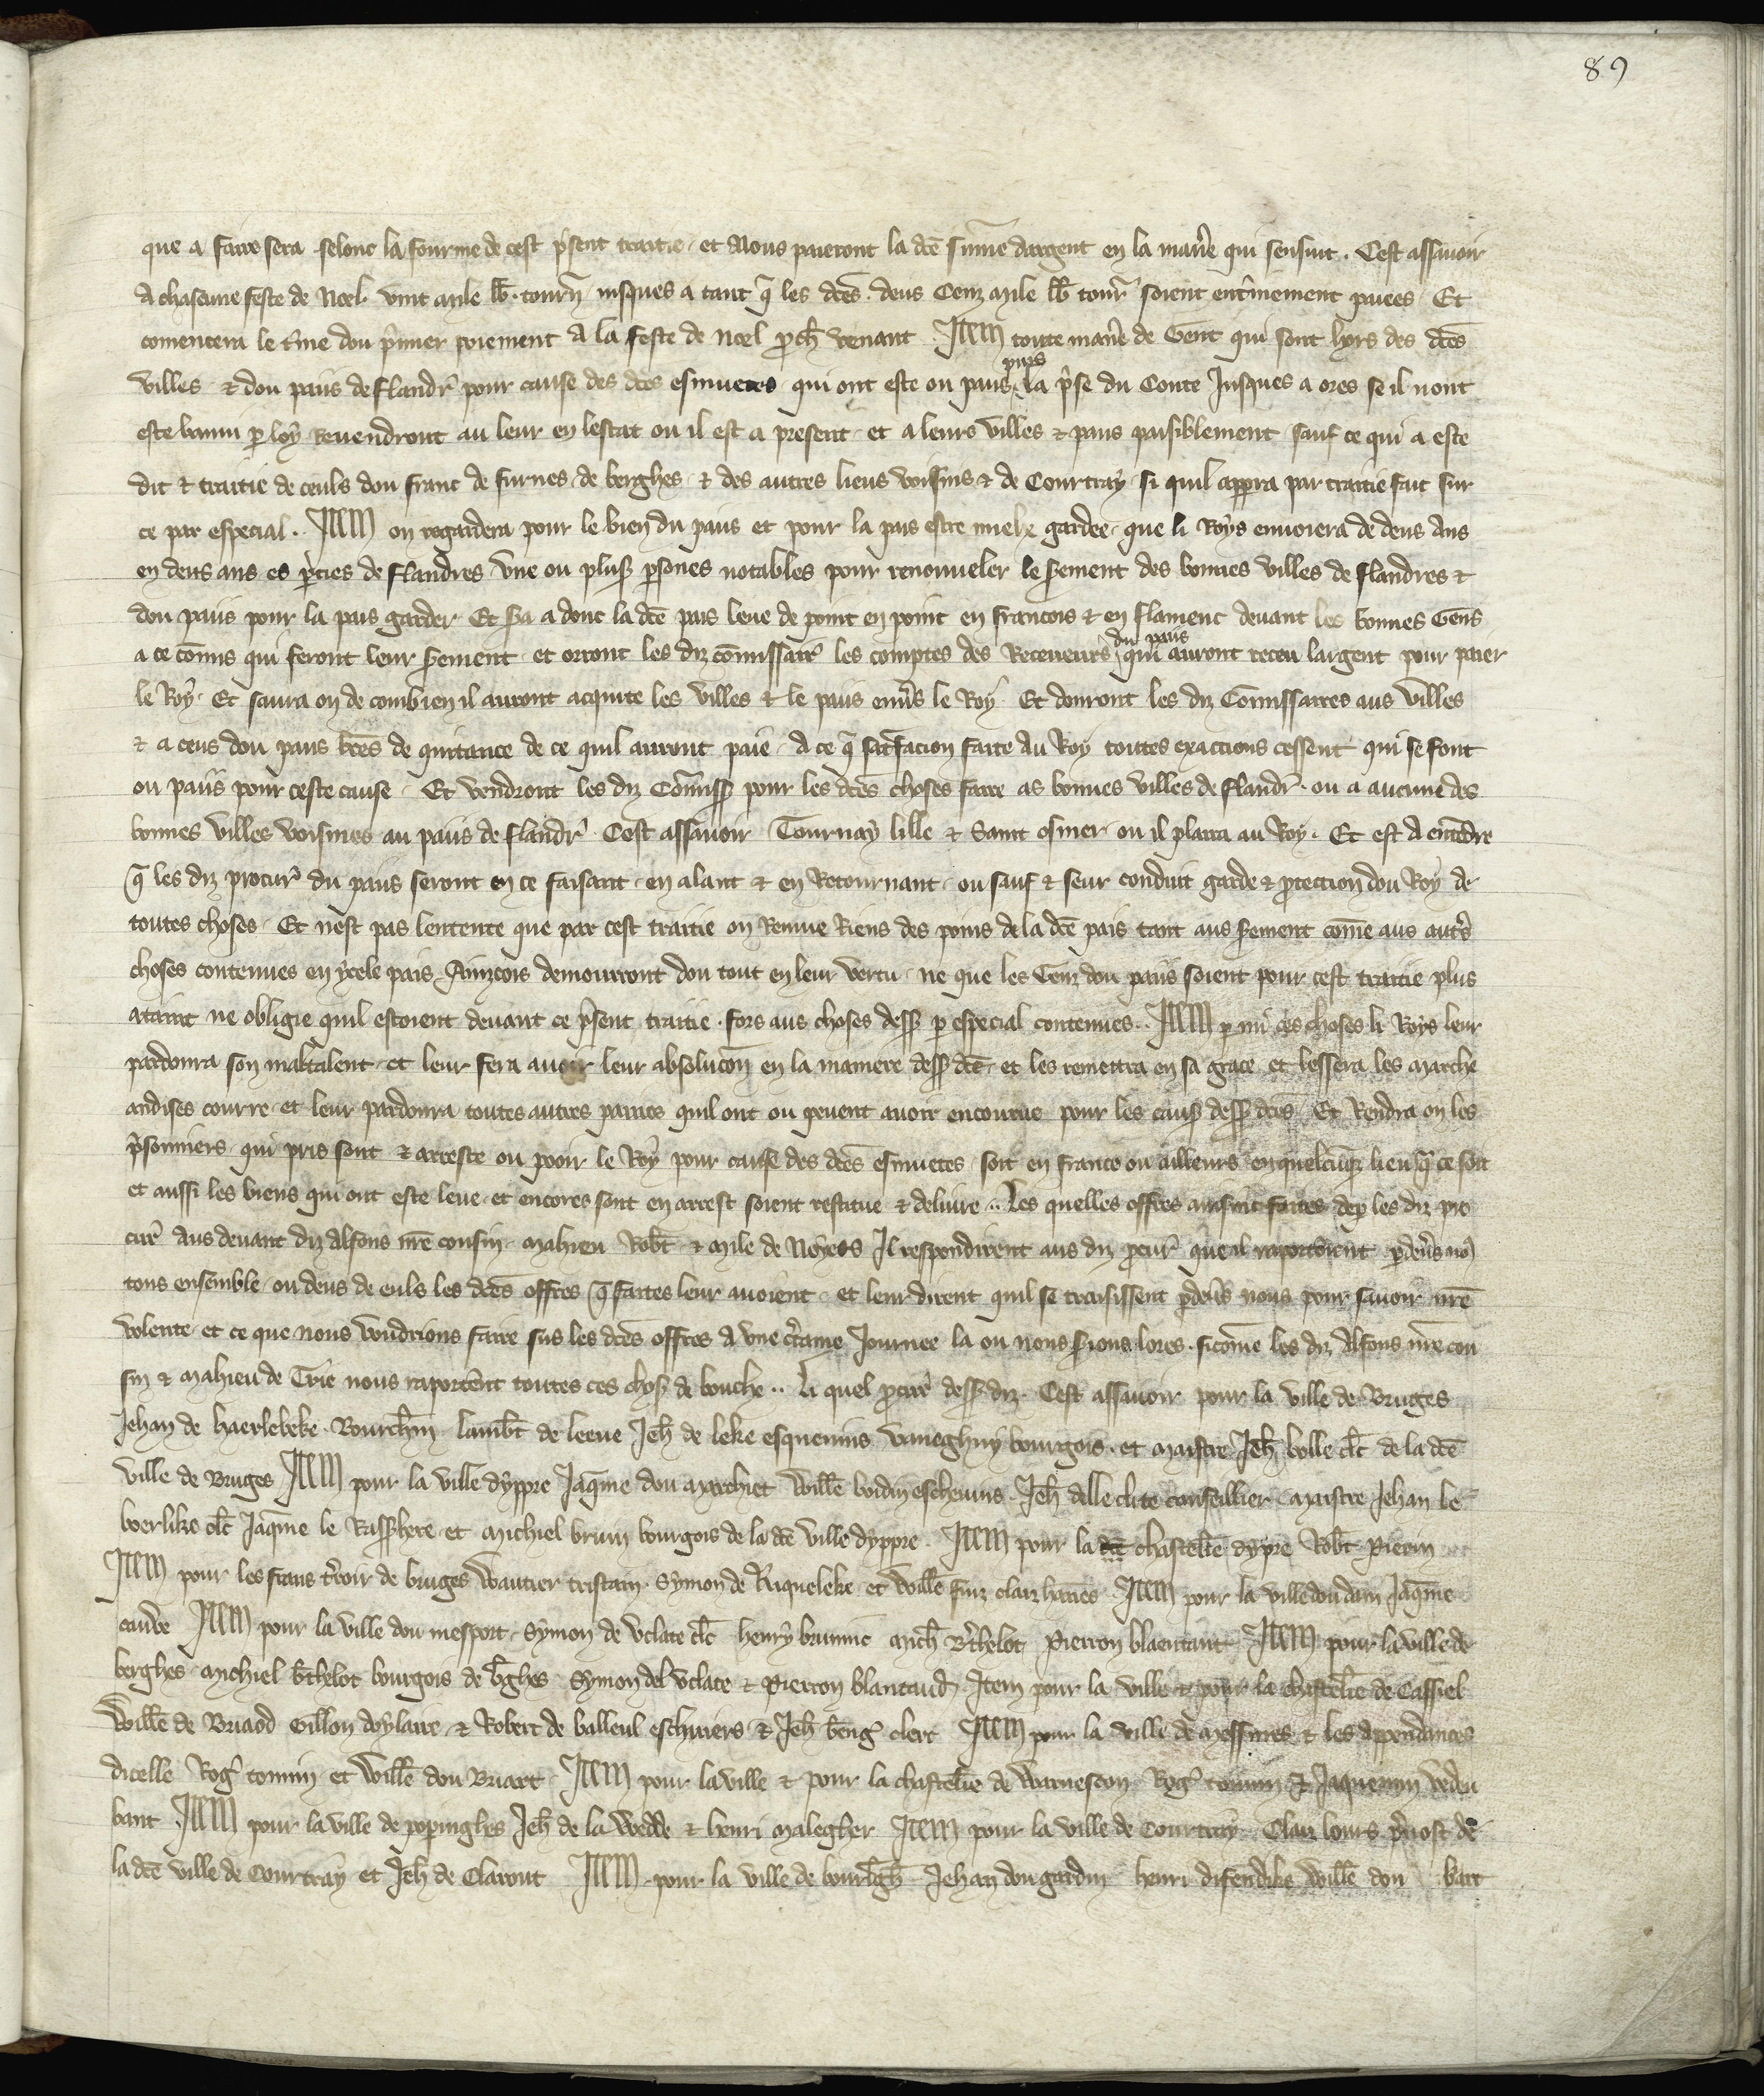 89
que a faire sera selonc la fourme de cest p̃sent traitie et Nous paieront la dc̃e sõme dargent en la mañe qui sensuit . Cest assauoir
A chascune feste de Noel vint mile lb̃ . tourñ iusques a tant q̃ les dc̃es deus Cenz mile lb̃ tour̃ soient ent̃inement paiees Et
comencera le t̃me dou p̃mier poiement A la feste de Noel pch̃ venant . Item toute mañe de Gent qui sont hors des dc̃es
villes & dou paiis de Flandr̃ pour cause des dc̃es esmuetes qui ont este ou paiis puis la p̃se du Conte Jusques a ores se il nont
este banni p loy Reuendront au leur en lestat ou il est a present et a leurs villes & paiis paisiblement sauf ce qui a este
dit & traitie de ceuls dou franc de furnes de berghes & des autres lieus voisins & de Courtray si quil apperra par traitie fait sur
ce par especial . Item on regardera pour le bien du paiis et pour la pais estre miels gardee que li Roys enuoiera de deus Ans
en deus ans es p̃ties de Flandres vne ou plus̃ psones notables pour renouueler le s̃ement des bonnes villes de Flandres &
dou paiis pour la pais garder Et s̃a a donc la dc̃e pais leue de point en point en francois & en flamenc deuant les bonnes Gens
a ce cõmis qui feront leur s̃ement et orront les diz cõmissair̃ les comptes des Receueurs du paiis qui auront receu largent pour paier
le Roy Et saura on de combien il auront acquite les villes & le paiis enũs le Roy Et donront les diz Cõmissaires aus villes
& a ceus dou paiis lr̃es de quitance de ce quil auront paie A ce q̃ satisfacion faite Au Roy toutes exactions cessent qui se font
ou paiis pour ceste cause Et vendront les diz Cõmiss̃ pour les dc̃es choses faire as bonnes villes de Flandr̃ ou a aucune des
bonnes villes voisines au paiis de Flandr̃ Cest assauoir Tournay lille & Saint osmer ou il plaira au Roy . Et est A entẽdre
q̃ les diz procur̃ du paiis seront en ce faisant en alant & en Retournant ou sauf & seur conduit garde & ptection dou Roy de
toutes choses Et nest pas lentente que par cest traitie on Remue Riens des poins de la dc̃e pais tant aus s̃ement com̃e aus aut̃s
choses contenues en ycele pais Ainzcois demourront dou tout en leur vertu ne que les Genz dou paiis soient pour cest traitie plus
ataint ne obligie quil estoient deuant ce p̃sent traitie fors aus choses dess̃ p especial contenues . Item p mi ces choses li Roys leur
pardonra son maltalent et leur fera auoir leur absolucõn en la maniere dess̃ dc̃e et les remettra en sa grace et lessera les marche
andises courre et leur pardonra toutes autres paines quil ont ou peuent auoir encourue pour les caus̃ dess̃ dc̃es Et Rendra on les
p̃sonniers qui pris sont & arreste ou pooir le Roy pour cause des dc̃es esmuetes soit en france ou ailleurs en quelcũqȝ lieu q̃ ce soit
et aussi les biens qui ont este leue et encores sont en arrest soient restitue & deliure .. Les quelles offres ainsint faites dep les diz pro
cur̃ Aus deuant diz Alfons nr̃e cousin Mahieu Rob̃t & Mile de Noyers Il respondirent aus diz pcur̃ que il raporteroient pdeũs nõ
tous ensemble ou deus de euls les dc̃es offres q̃ faites leur auoient et leur dirent quil se traisissent pdeũs nous pour sauoir nr̃e
volente et ce que nous voudrions faire sus les dc̃es offres A vne c̃taine Journee la ou nous s̃ions lores . sicom̃e les diz Alfons nr̃e cou
sin & Mahieu de Trie nous raportẽnt toutes ces chos̃ de bouche .. Li quel pcur̃ dess̃ diz . Cest assauoir pour la ville de Bruges
Jehan de haerlebeke Bourch̃m lamb̃t de leeue Jeh̃ de leke esqueuins vaneghuy bourgois et maistre Jeh̃ bolle clc̃ de la dc̃e
ville de Bruges Item pour la ville dyppre Jaq̃me dou Marchiet Will̃e boidin escheuins . Jeh̃ Alle clute conseillier Maistre Jehan le
boerlike clc̃ Jaq̃me le Rasphere et Michiel brun bourgois de la dc̃e ville dyppre . Item pour la chastelr̃ie dypre Rob̃t Pierin
Item pour les frans t̃roir de bruges Wautier tristam . Symon de Riqueleke et Will̃e fiuz clairhaties Item pour la ville dou dam Jaq̃me
caudre Item pour la ville dou niefport Symon de vclate clc̃ henry brunnic Mich̃ B̃thelot Pierron blaentant Item pour la ville de
berghes Michiel b̃thelot bourgois de b̃ghes Symon del vclate & Pierron blantaud Item pour la ville & pour la chastelr̃ie de Cassiel
Will̃e de Briaod Gillon doylaire & Robert de bailleul escheuiers & Jeh̃ b̃eng̃ clerc Item pour la ville de Messines & les appendances
dicelle Rog̃ tomin et Will̃e dou Briart Item pour la ville & pour la chastelr̃ie de Warneston Rog̃ tomin & Jaquemin vedeu
bant Item pour la ville de poperinghes Jeh̃ de la Wedde & henri Malegheer Item pour la ville de Courtray Clair louis p̃uost de
la dc̃e ville de Courtray et Jeh̃ de Clarout Item pour la ville de bourb̃gh̃ Jehan dou gardin henri difendike Will̃e dou bare